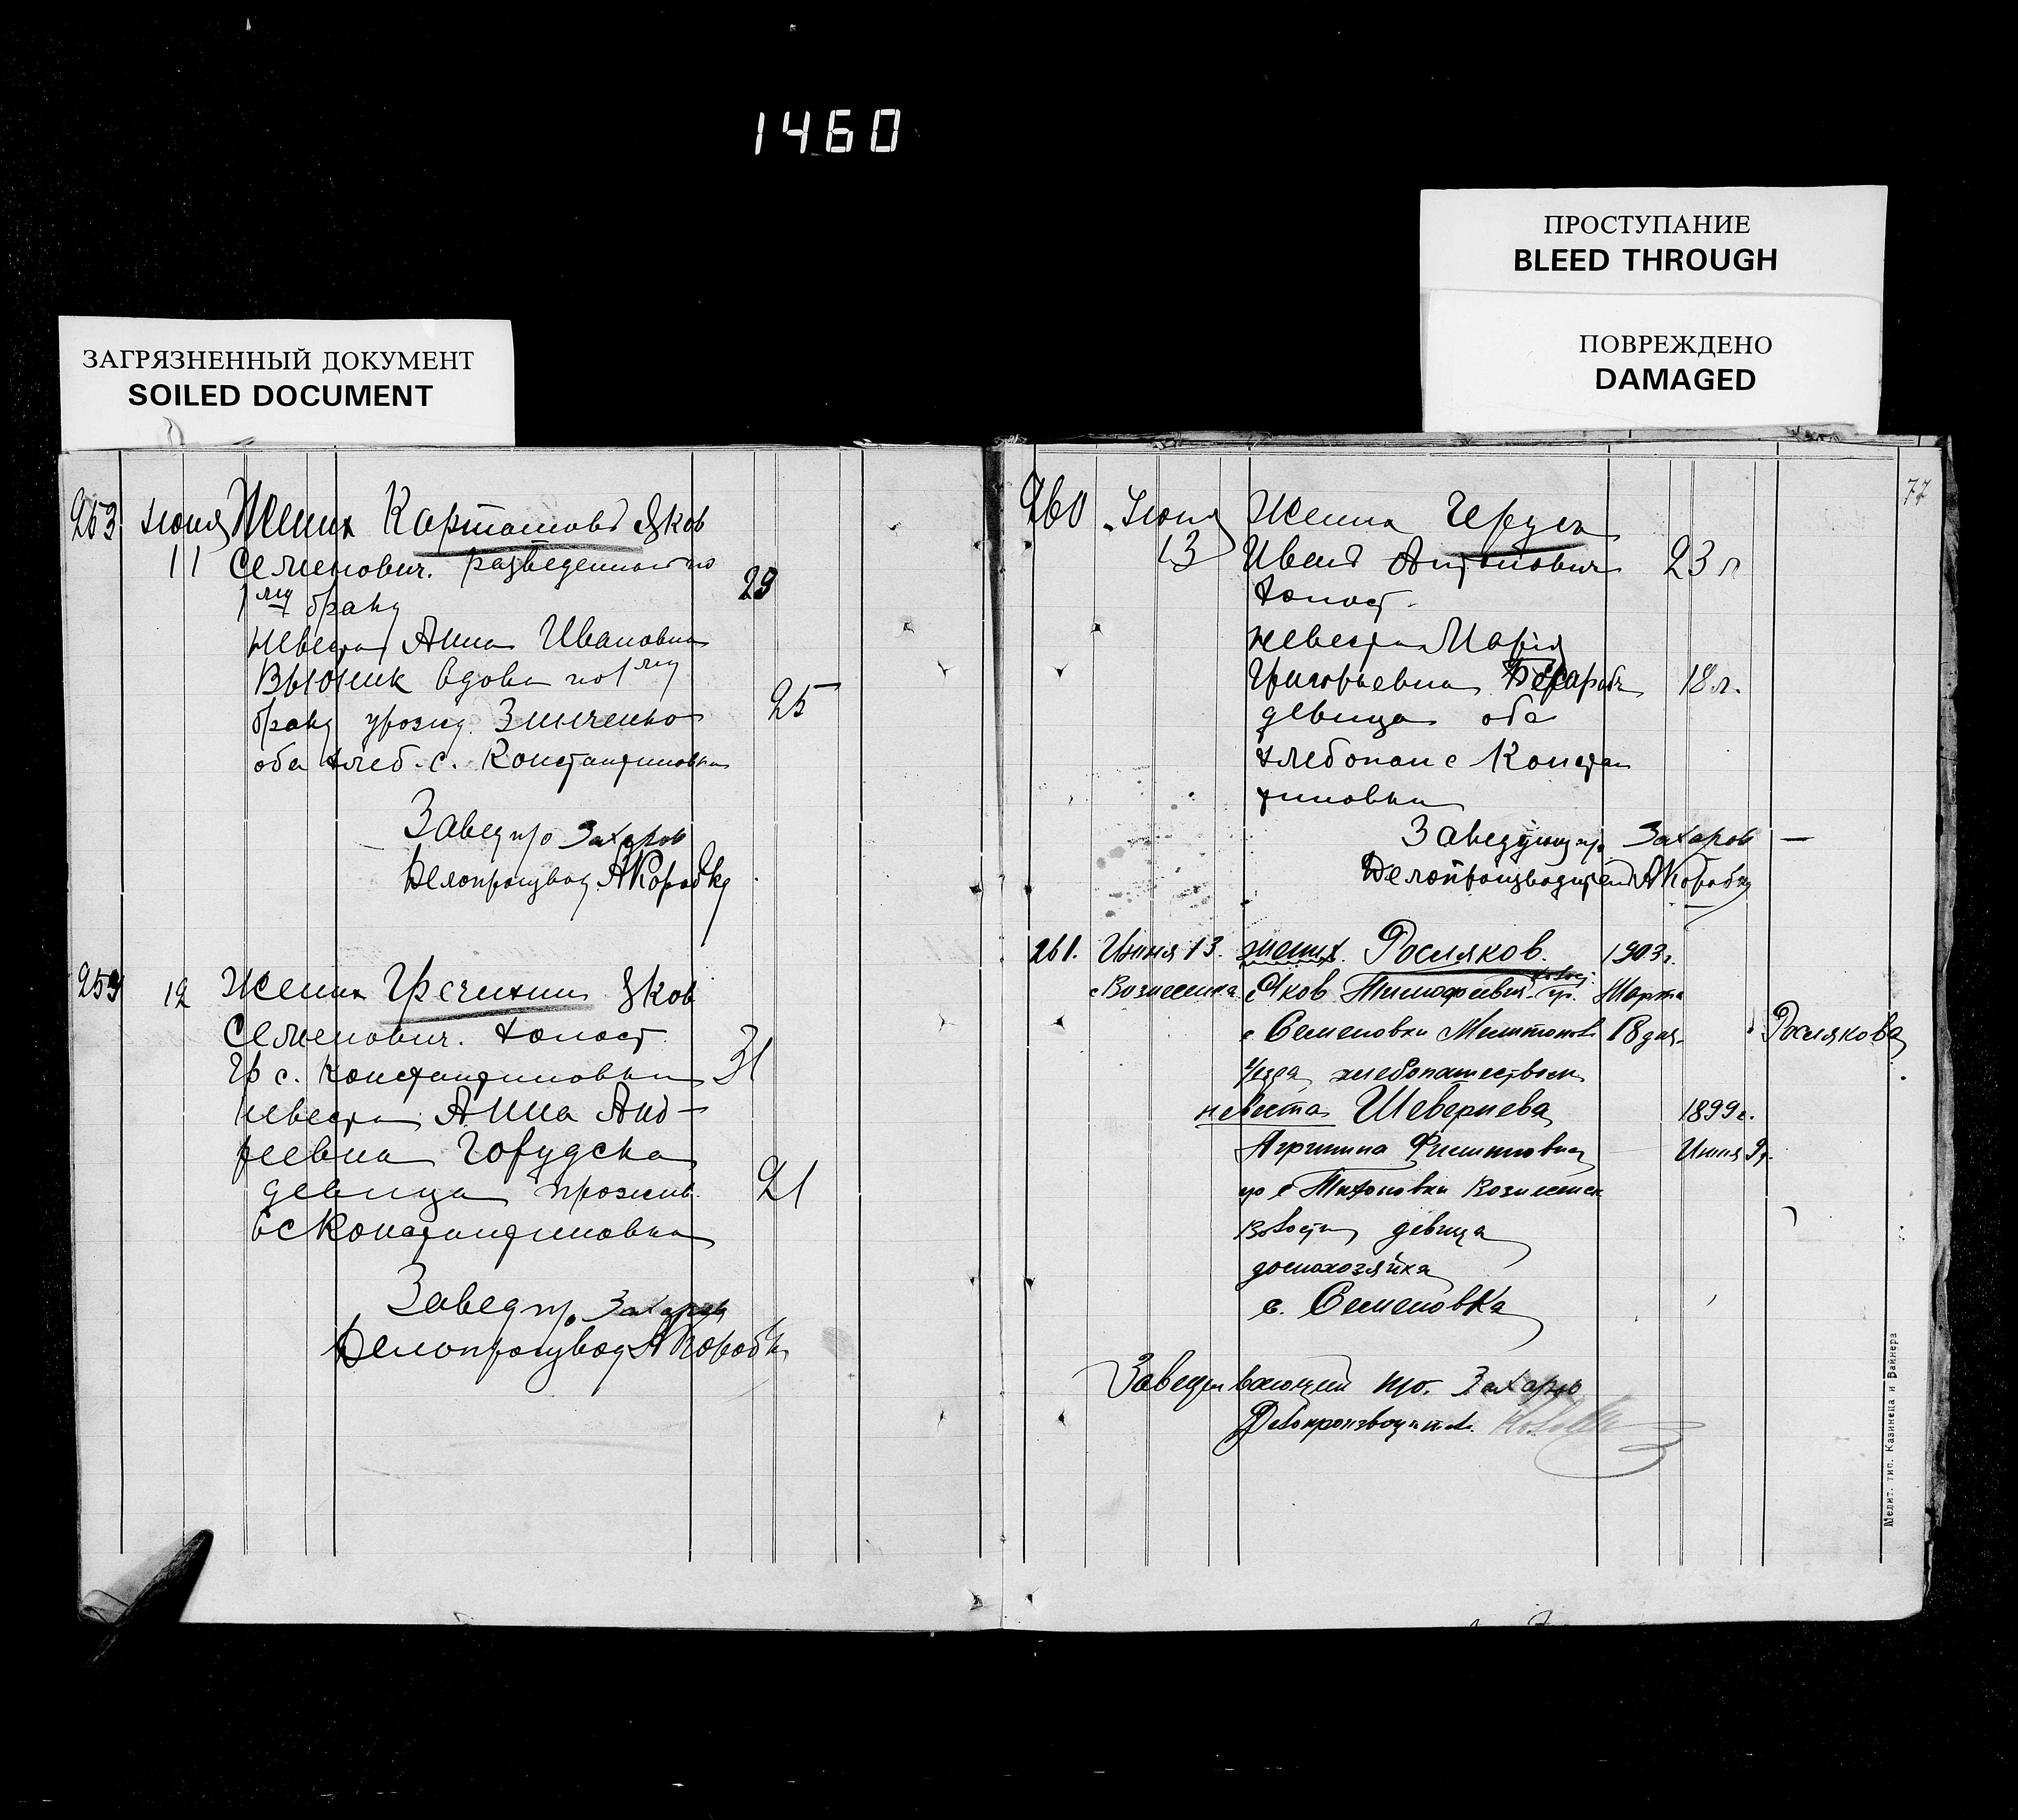 1460
ПРОСТУПАНИЕ
BLEED THROUGH
ПОВРЕЖДЕНО
DAMAGED
ЗАГРЯЗНЕННЫЙ ДОКУМЕНТ
SOILED DOCUMENT
253 Июня Жених Карташовъ Яков
11 Семенович. разведенност по
1му браку 29
невеста Анна Ивановна
Вьюник вдова по 1му
браку урожд. Зинченко 25
оба хлеб. с. Константиновки
Завед п/о Захаров
Делопроизвод. АКоробка
259 12 Жених Гречихин Яков
Семенович. холост.
Гр с. Константиновки 31
невеста Анна Анд-
реевна
девица прожив. 21
в с Константиновки
Завед п/о Захаров
Делопроизвод АКоробка
77
260 Июня Жених
13 Иван Антонович 23 л
холост.
невеста Мария
Григорьевна 18 л.
девица оба
хлебопаш с Констан
тиновки
Заведующ п/о Захаров
Делопроизводитель АКоробка
261. Июня 13. жених. Росляков. 1903 г.
с Вознесенка Яков Тимофеевич холост. гр. Марта
с Семеновки Мелитопол 18 дня. Рослякова
Уезда, хлебопашеством
невеста Шевернева 1899 г.
Агрипина Филиповна Июня 9 д.
гр с Тихоновки Вознесенск
Волости девица
домохозяйка
с. Семеновка
Заведывающий п/о. Захаров
Делопроизводител.
Мелит. тип. Казинеца и Вайнера